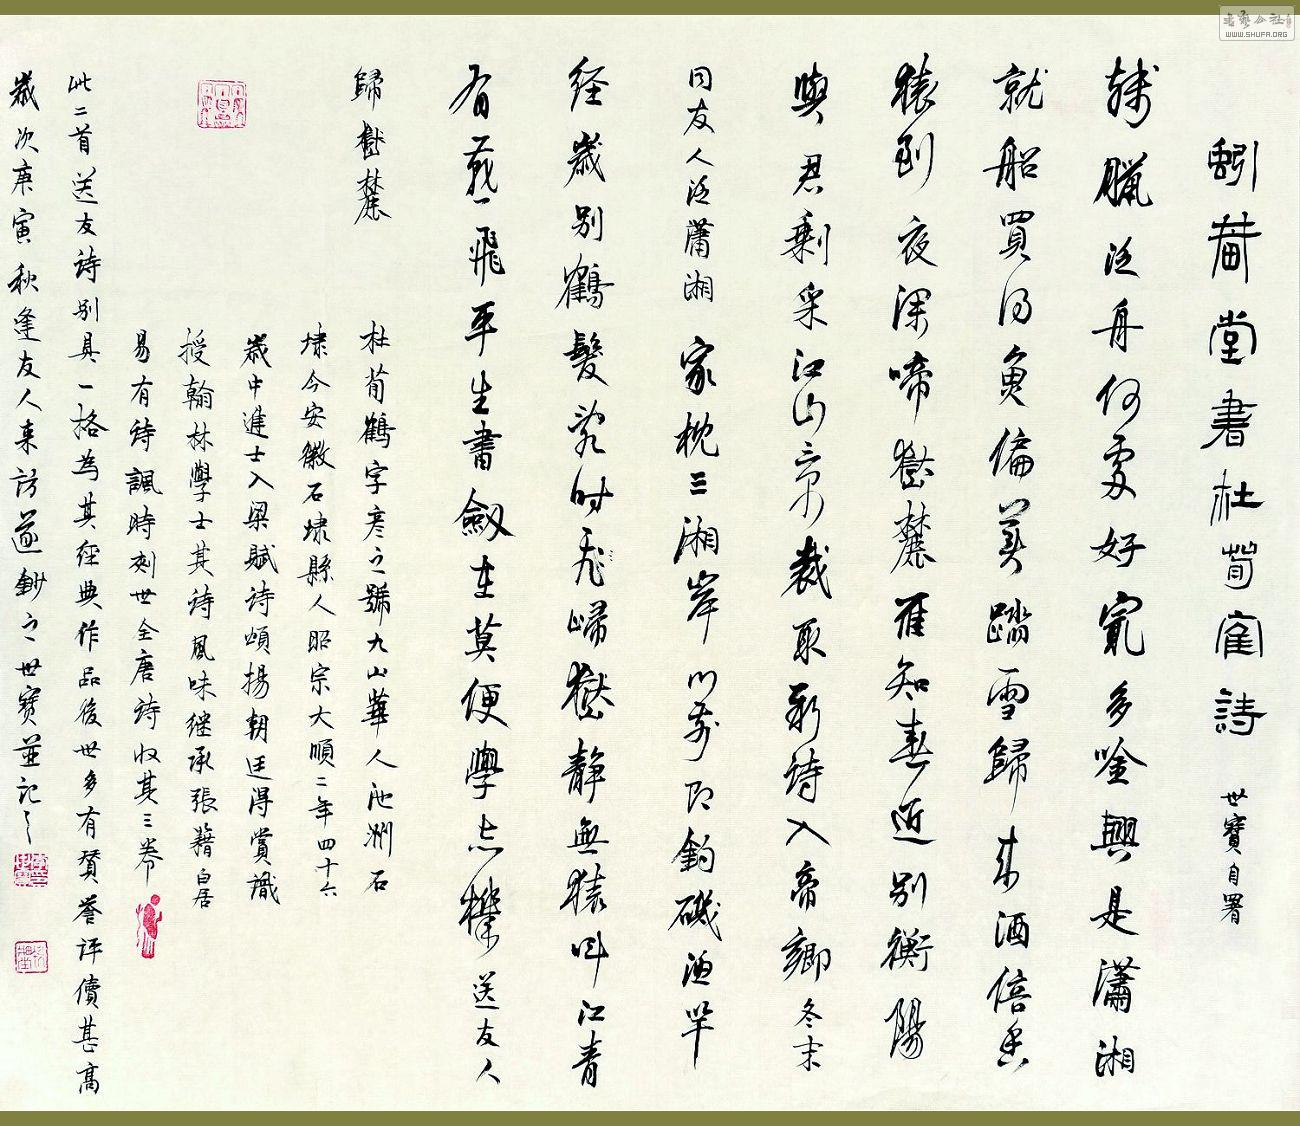 蚓堂書杜荀隺詩 世寶自署
残臘泛舟何處好冣多唫興是瀟湘
就船買得魚偏美踏雪歸來酒倍香
猿到夜深啼嶽麓雁知春近別衡陽
與君剩采江山景裁取新詩入帝鄉 冬末
同友人泛瀟湘 家枕三湘岸門前即釣磯漁竿
経歲別鶴髮幾時飛歸嶽靜無猿叫江青
有燕飛平生書劔在莫便學忘機 送友人
歸嶽麓
杜荀鶴字彥之號九山華人池洲石
埭今安徽石埭縣人昭宗大順二年四十六
歲中進士入梁賦詩頌揚朝廷得賞識
授翰林學士其詩風味继承張籍白居
易有詩諷時刻世全唐詩收其三卷
此二首送友詩別具一格為其經典作品後世多有贊譽評價甚高
歲次庚寅秋逢友人来訪遂鈔之世寶並記之
書藝公社
WWW.SHUFA.ORG